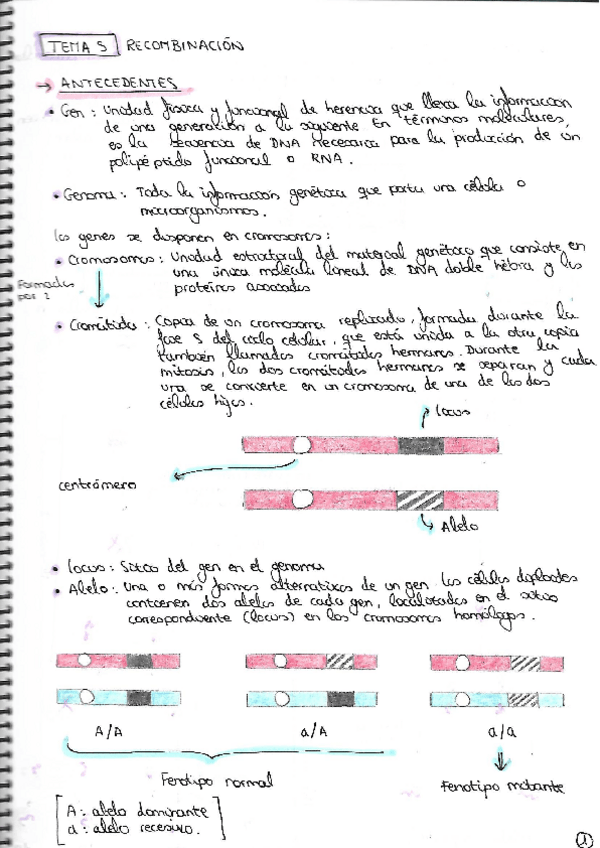 TEMA 5 RECOMBINACIÓN
→ ANTECEDENTES
• Gen : Unidad física y funcional de herencia que lleva la información
de una generación a la siguiente En términos moleculares,
es la secuencia de DNA necesaria para la producción de un
polipéptido funcional o RNA.
• Genoma : Toda la información genética que porta una célula o
microorganismos.
los genes se disponen en cromosomas :
• Cromosomas : Unidad estructural del material genético que consiste en
una única molécula lineal de DNA doble hebra y las
proteínas asociadas
Formados
por 2
• Cromátidas : Copia de un cromosoma replicado, formada durante la
fase S del ciclo celular, que está unida a la otra copia
también llamadas cromátidas hermanas. Durante la
mitosis, las dos cromátidas hermanas se separan y cada
una se convierte en un cromosoma de una de las dos
células hijas.
locus
centrómero
Alelo
• locus : Sitio del gen en el genoma
• Alelo : Una o más formas alternativas de un gen. Las células diploides
contienen dos alelos de cada gen, localizados en el sitio
correspondiente (locus) en los cromosomas homólogos.
A/A a/A a/a
Fenotipo normal Fenotipo mutante
A : alelo dominante
a : alelo recesivo.
1